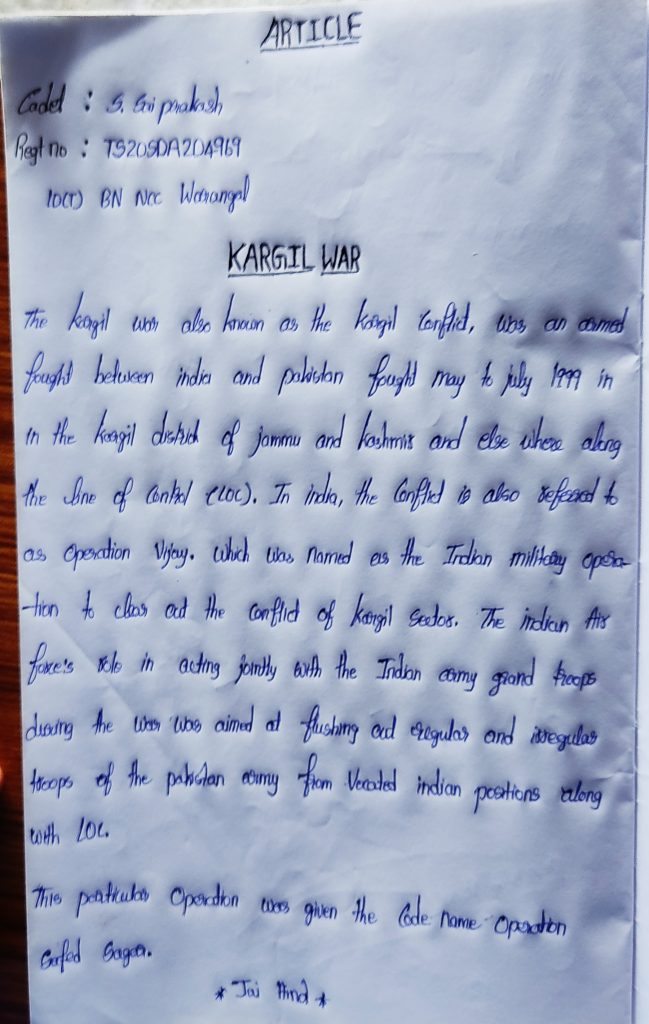 ARTICLE
Cadet : S. Sri prakash
Regt no : TS20SDA204969
10(T) BN NCC Warangal
KARGIL WAR
The kargil war also known as the kargil Conflict, was an armed
fought between india and pakistan fought may to july 1999 in
in the kargil district of jammu and kashmir and else where along
the line of Control (LOC). In india, the Conflict is also refeered to
as Operation Vijay. Which was Named as the Indian military opera-
-tion to clear out the conflict of kargil Sector. The indian Air
force's role in acting jointly with the Indian army grand troops
during the war was aimed at flushing out regular and irregular
troops of the pakistan army from Vecated indian positions along
with LOC.
This particular Operation was given the Code Name Operation
Safed Sagar.
* Jai Hind *